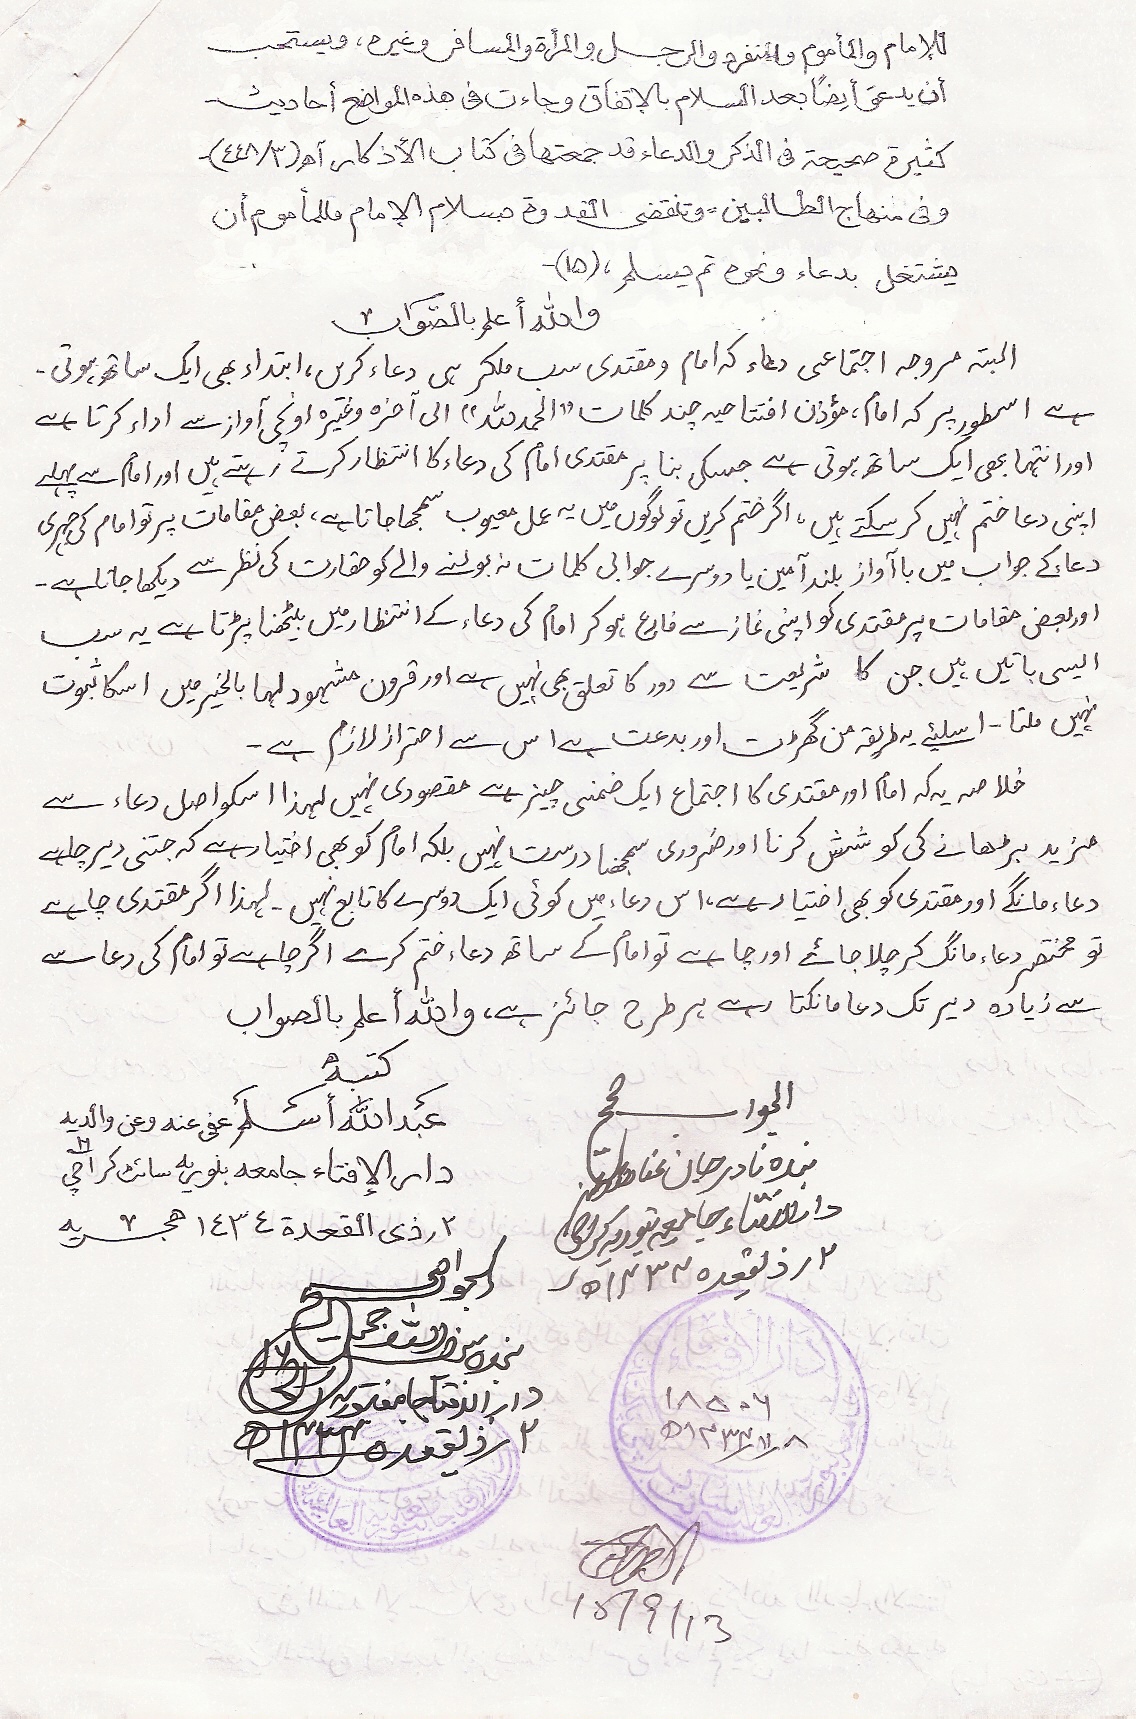 للإمام والمأموم والمنفرد والرجل والمرأة والمسافر وغيره، ويستحب
أن يدعو أيضًا بعد السلام بالإتفاق وجاءت فى هذه المواضع أحاديث
كثيرة صحيحة فى الذكر والدعاء قد جمعتها فى كتاب الأذكار، اھ (٣/٤٤٨)۔
وفى منهاج الطالبين۔ وتنقضى القدوة بسلام الإمام فللمأموم أن
يشتغل بدعاء ونحوه ثم يسلم، (١٥)۔
والله أعلم بالصواب
البتہ مروجہ اجتماعی دعاء کہ امام ومقتدی سب ملکر ہی دعاء کریں، ابتداء بھی ایک ساتھ ہوتی۔
ہے اسطور پر کہ امام، مؤذن افتتاحیہ چند کلمات "الحمدللہ" الی آخرہ وغیرہ اونچی آواز سے اداء کرتا ہے
اور انتہا بھی ایک ساتھ ہوتی ہے جسکی بنا پر مقتدی امام کی دعاء کا انتظار کرتے رہتے ہیں اور امام سے پہلے
اپنی دعا ختم نہیں کر سکتے ہیں، اگر ختم کریں تو لوگوں میں یہ عمل معیوب سمجھا جاتا ہے، بعض مقامات پر تو امام کی جہری
دعاء کے جواب میں با آواز بلند آمین یا دوسرے جوابی کلمات نہ بولنے والے کو حقارت کی نظر سے دیکھا جاتا ہے۔
اور بعض مقامات پر مقتدی کو اپنی نماز سے فارغ ہو کر امام کی دعاء کے انتظار میں بیٹھنا پڑتا ہے یہ سب
ایسی باتیں ہیں جن کا شریعت سے دور کا تعلق بھی نہیں ہے اور قرون مشہود لہا بالخیر میں اسکا ثبوت
نہیں ملتا۔ اسلیئے یہ طریقہ من گھڑت اور بدعت ہے اس سے احتراز لازم ہے۔
خلاصہ یہ کہ امام اور مقتدی کا اجتماع ایک ضمنی چیز ہے مقصودی نہیں لہذا اسکو اصل دعاء سے
مزید بڑھانے کی کوشش کرنا اور ضروری سمجھنا درست نہیں بلکہ امام کو بھی اختیار ہے کہ جتنی دیر چاہے
دعاء مانگے اور مقتدی کو بھی اختیار ہے، اس دعاء میں کوئی ایک دوسرے کا تابع نہیں۔ لہذا اگر مقتدی چاہے
تو مختصر دعاء مانگ کر چلا جائے اور چاہے تو امام کے ساتھ دعاء ختم کرے اگر چاہے تو امام کی دعا سے
سے زیادہ دیر تک دعا مانگتا رہے ہر طرح جائز ہے، والله أعلم بالصواب
کتبہ
عبداللہ أسلم عفی عنہ وعن والدیہ
دار الإفتاء جامعہ بنوریہ سائٹ کراچی
٢ / ذی القعدة ١٤٣٤ هجریه
الجواب صحیح
بندہ نادر جان
دار الافتاء جامعہ بنوریہ کراچی
٢ / ذیقعدہ ١٤٣٤ھ
الجواب صحیح
بندہ
دار الافتاء جامعہ بنوریہ
٢ / ذیقعدہ ١٤٣٤ھ
دار الإفتاء
١٨٥٠٦
15/9/13